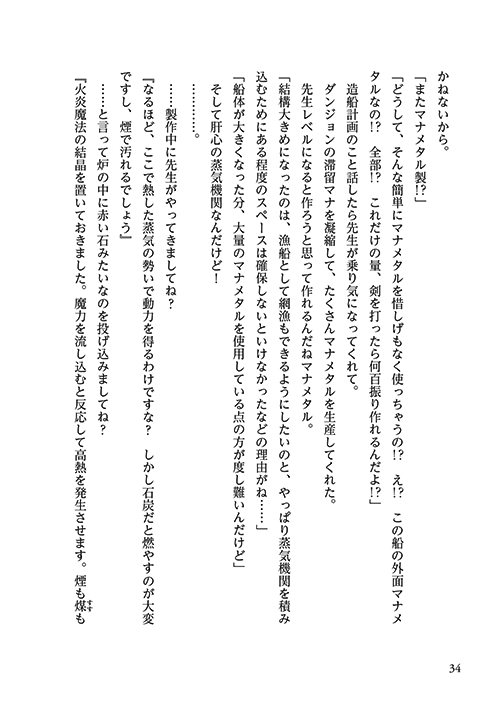 かねないから。
「またマナメタル製!?」
「どうして、そんな簡単にマナメタルを惜しげもなく使っちゃうの!?　え!?　この船の外面マナメ
タルなの!?　全部!?　これだけの量、剣を打ったら何百振り作れるんだよ!?」
造船計画のこと話したら先生が乗り気になってくれて。
ダンジョンの滞留マナを凝縮して、たくさんマナメタルを生産してくれた。
先生レベルになると作ろうと思って作れるんだねマナメタル。
「結構大きめになったのは、漁船として網漁もできるようにしたいのと、やっぱり蒸気機関を積み
込むためにある程度のスペースは確保しないといけなかったなどの理由がね……」
「船体が大きくなった分、大量のマナメタルを使用している点の方が度し難いんだけど」
…………。
そして肝心の蒸気機関なんだけど！
……製作中に先生がやってきましてね？
『なるほど、ここで熱した蒸気の勢いで動力を得るわけですな？　しかし石炭だと燃やすのが大変
ですし、煙で汚れるでしょう』
……と言って炉の中に赤い石みたいなのを投げ込みましてね？
『火炎魔法の結晶を置いておきました。魔力を流し込むと反応して高熱を発生させます。煙も煤も
34